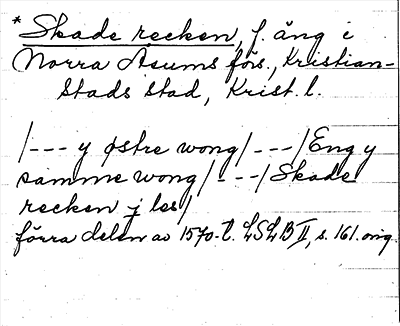 * Skade recken, f. äng i
Norra Åsums förs., Kristian-
stads stad, Krist. l.
/--- y østre wong/---/Eng y
samme wong/---/Skade
recken j les/
förra delen av 1570-t. LSLB II, s. 161. orig.